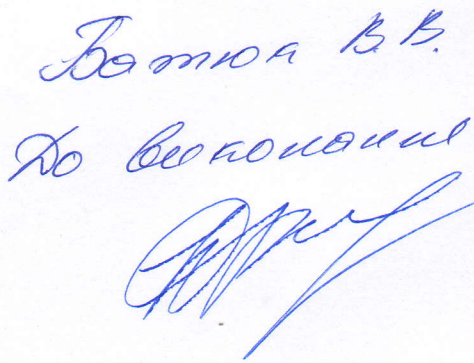 Батюк В.В.
До виконання